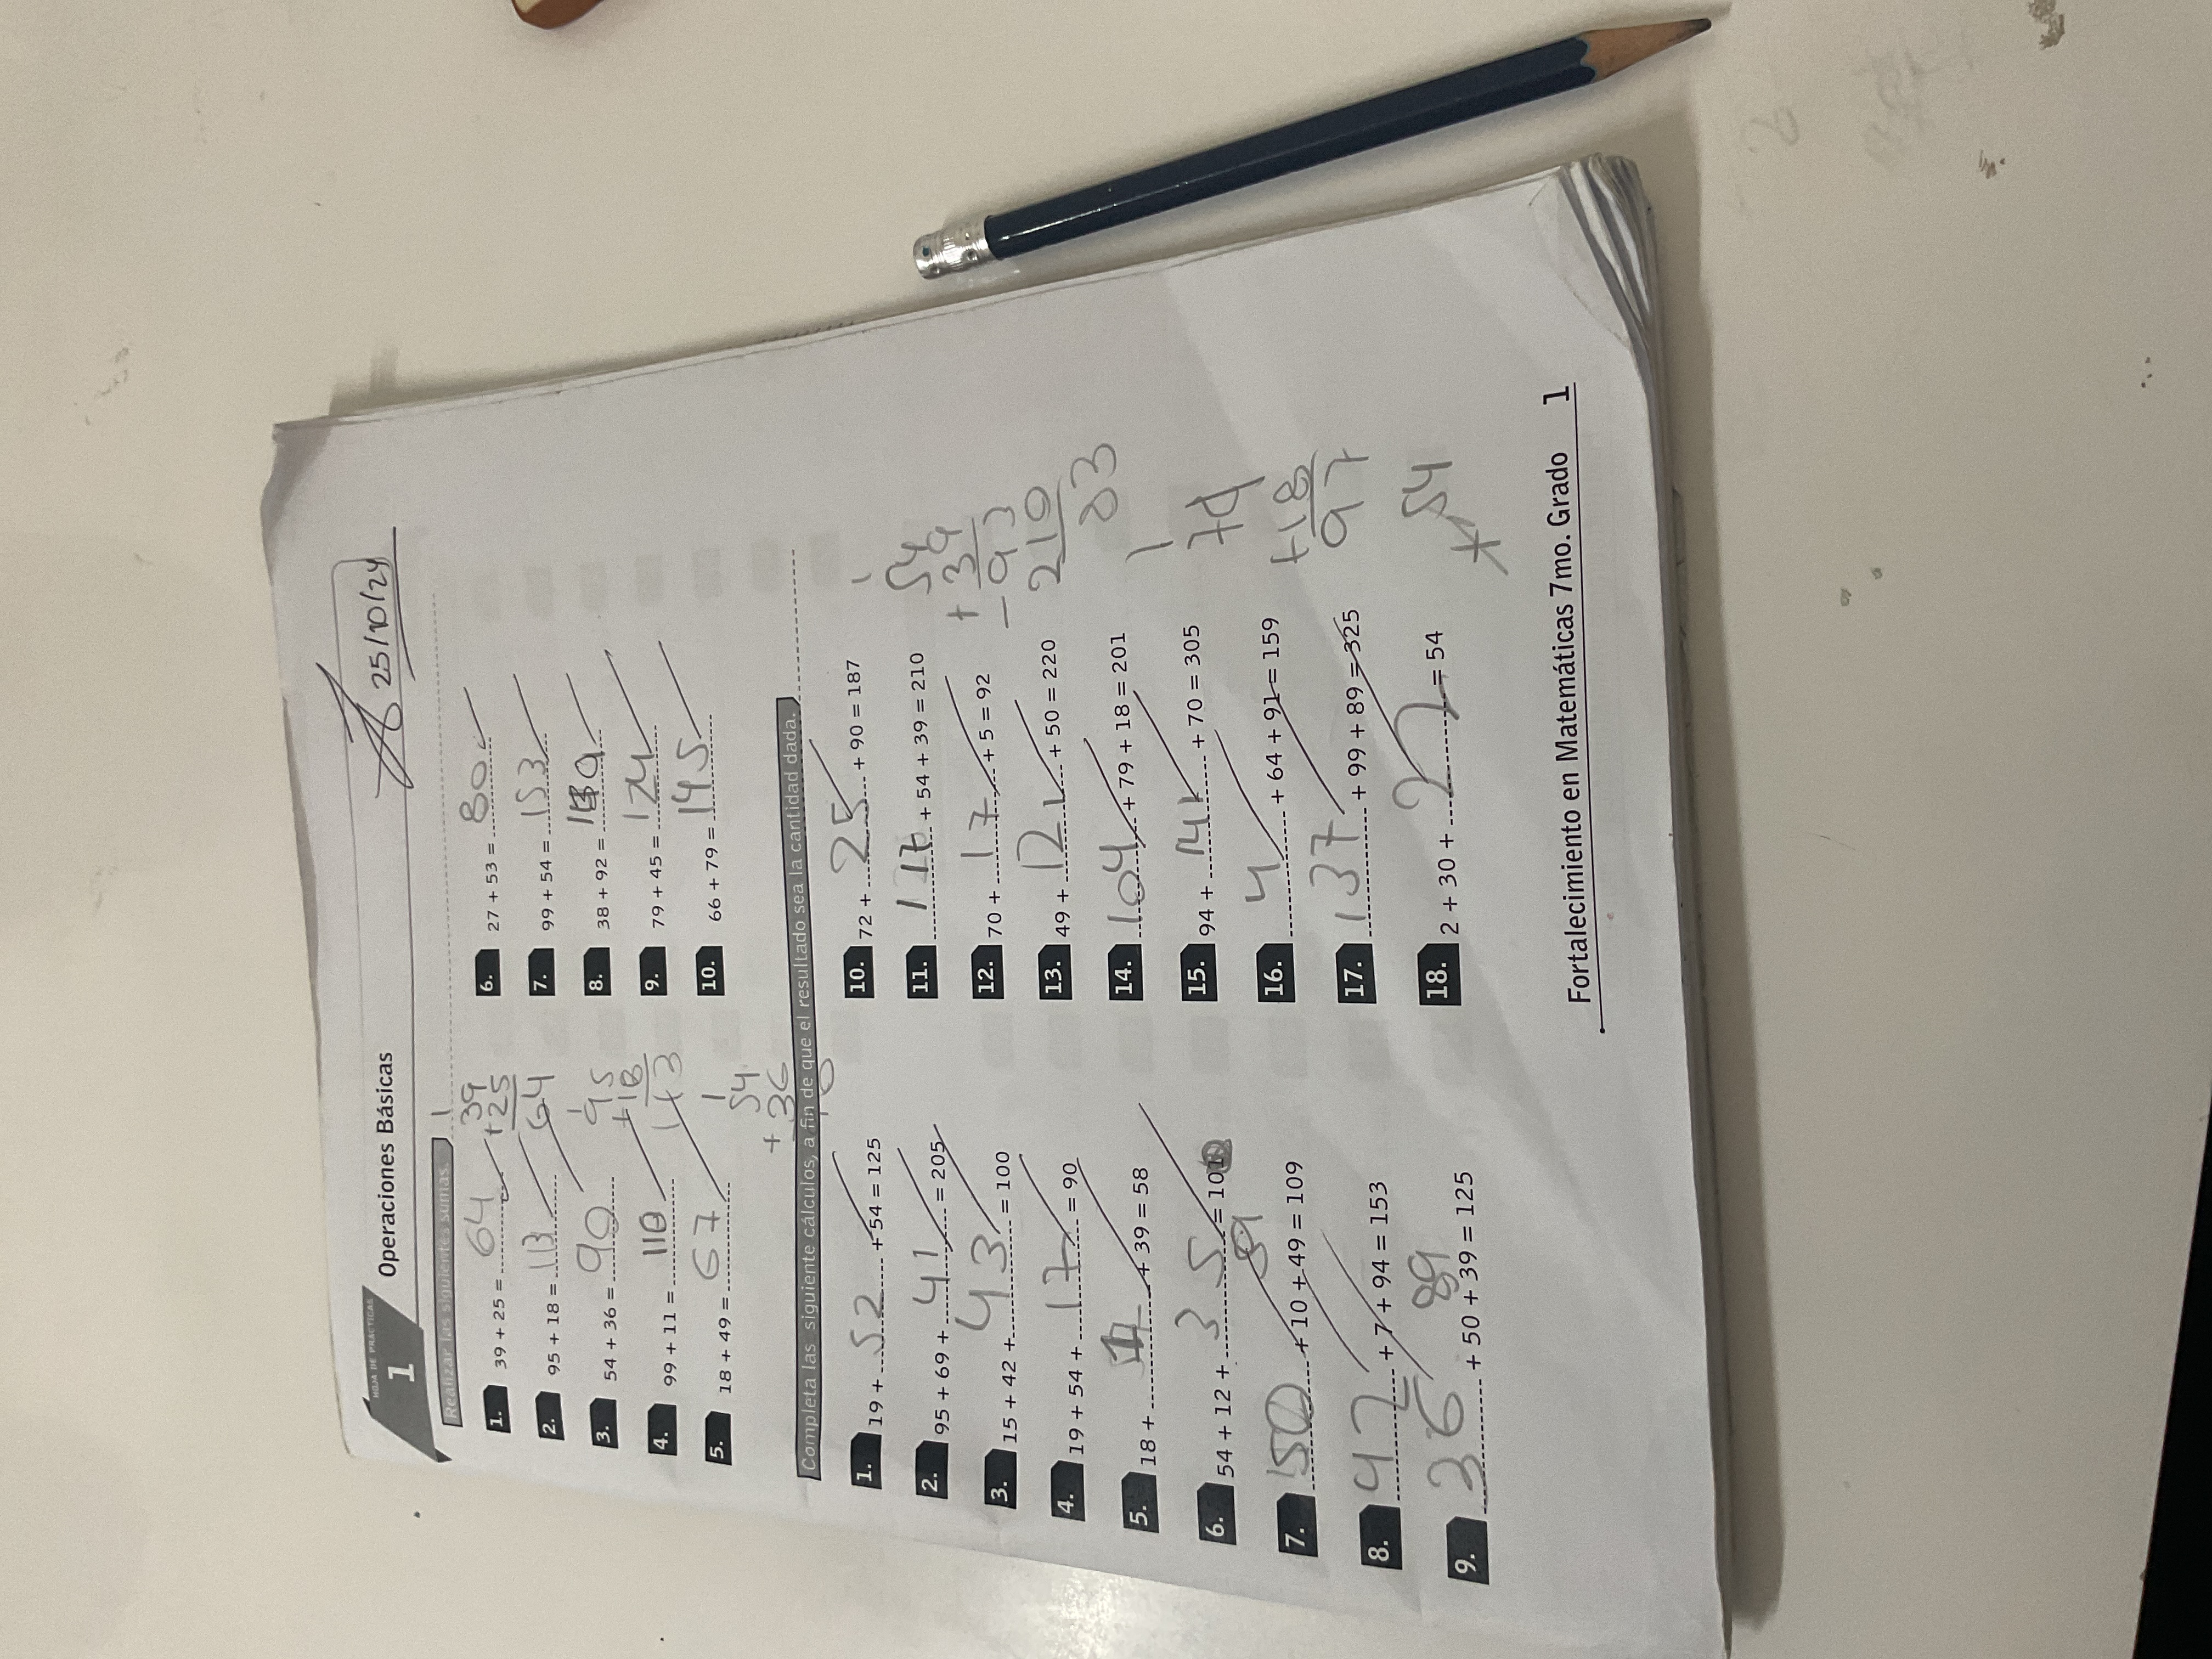 HOJA DE PRACTICAS
1
Operaciones Básicas
25/10/24
Realizar las siguientes sumas.
1. 39 + 25 = 64
2. 95 + 18 = 113
3. 54 + 36 = 90
4. 99 + 11 = 110
5. 18 + 49 = 67
1
39
+25
64
1
95
+18
113
1
54
+36
6. 27 + 53 = 80
7. 99 + 54 = 153
8. 38 + 92 =
9. 79 + 45 = 124
10. 66 + 79 = 145
Completa las siguiente cálculos, a fin de que el resultado sea la cantidad dada.
1. 19 + 52 + 54 = 125
2. 95 + 69 + 41 = 205
3. 15 + 42 + 43 = 100
4. 19 + 54 + 17 = 90
5. 18 + + 39 = 58
6. 54 + 12 + 35 = 101
7. 50 + 10 + 49 = 109
8. 42 + 7 + 94 = 153
9. 36 + 50 + 39 = 125
89
10. 72 + 25 + 90 = 187
11. 117 + 54 + 39 = 210
12. 70 + 17 + 5 = 92
13. 49 + 121 + 50 = 220
14. 104 + 79 + 18 = 201
15. 94 + 141 + 70 = 305
16. 4 + 64 + 91 = 159
17. 137 + 99 + 89 = 325
18. 2 + 30 + 22 = 54
1
54
+39
-93
210
83
1
79
+18
97
+ 54
Fortalecimiento en Matemáticas 7mo. Grado 1